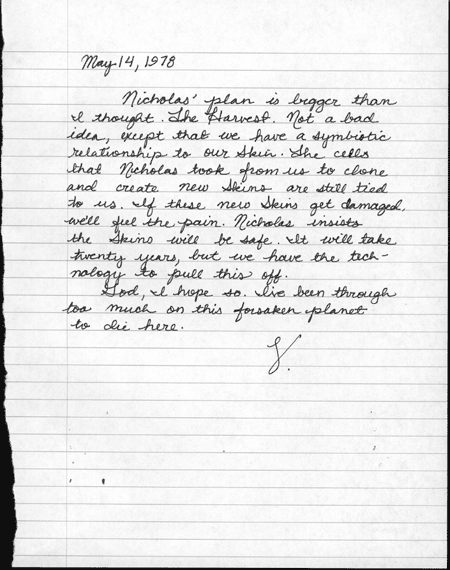 May 14, 1978
Nicholas' plan is bigger than
I thought. The Harvest. Not a bad
idea, except that we have a symbiotic
relationship to our Skin. The cells
that Nicholas took from us to clone
and create new Skins are still tied
to us. If these new Skins get damaged,
we'll feel the pain. Nicholas insists
the Skins will be safe. It will take
twenty years, but we have the tech-
nology to pull this off.
God, I hope so. I've been through
too much on this forsaken planet
to die here.